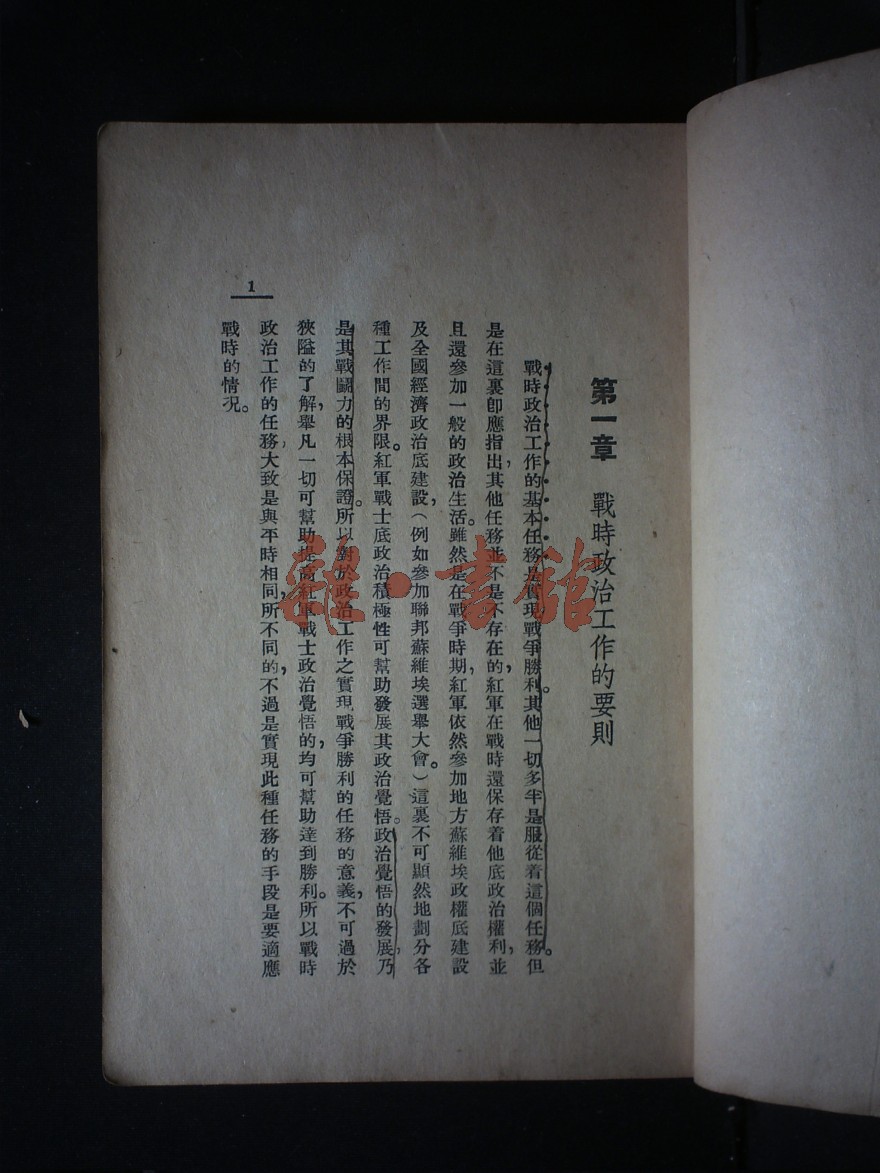 第一章　戰時政治工作的要則
戰時政治工作的基本任務是實現戰爭勝利。其他一切多半是服從着這個任務。但
是在這裏卽應指出，其他任務並不是不存在的，紅軍在戰時還保存着他底政治權利，並
且還參加一般的政治生活。雖然是在戰爭時期，紅軍依然參加地方蘇維埃政權底建設
及全國經濟政治底建設，（例如參加聯邦蘇維埃選舉大會。）這裏不可顯然地劃分各
種工作間的界限。紅軍戰士底政治積極性可幫助發展其政治覺悟。政治覺悟的發展，乃
是其戰鬭力的根本保證。所以對於政治工作之實現戰爭勝利的任務的意義，不可過於
狹隘的了解，舉凡一切可幫助提高紅軍戰士政治覺悟的，均可幫助達到勝利。所以戰時
政治工作的任務，大致是與平時相同，所不同的，不過是實現此種任務的手段是要適應
戰時的情況。
1
雜·書館